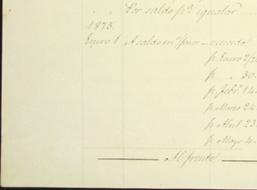 " " Por saldo pª igualar
1873.
Enero 1 A
p. Enero 2/
p. " 30.
p. Febº 14
p. Marzo 24
p. Abril 23
p. Mayo 4
Al frente